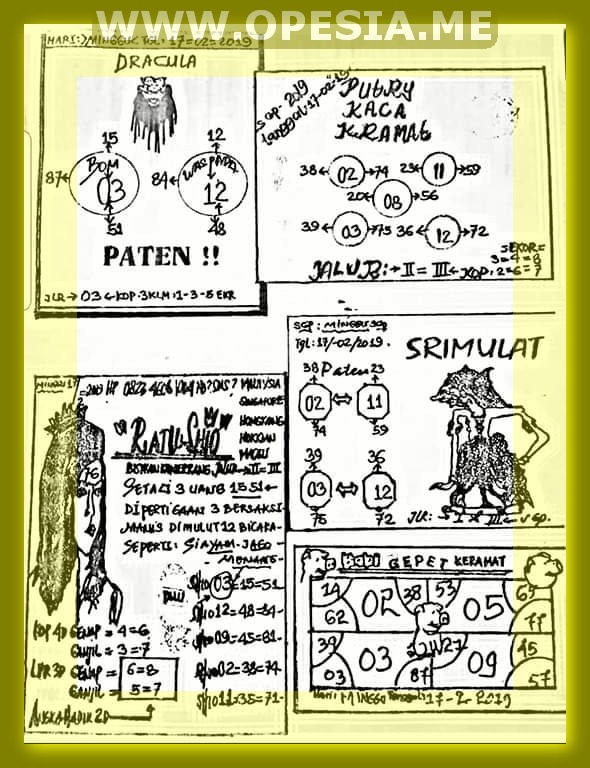 WWW.OPESIA.ME
HARI:) MINGGUK TGL: 17=02=2019
DRACULA
15
12
87
BOM
03
84
WASPADA
12
51
48
PATEN !!
JLR → 03 KOP.3 KLM:1-3-5 EKR
SGP. 2019
tanggal:17-02-19
PUtRY
KACA
KRAMAt
38 02 74
23 11 59
20 08 56
39 03 75
36 12 72
JALUR: → II = III ← KOP: 2=6=7
SEKOR=
3=4=8
SGP: MINGGU
TGL: 17/-02/2019.
SRIMULAT
38 Paten 23
02 ⇔ 11
74 59
39 36
03 ⇔ 12
75 72
JLR: → I X III ← SGP.
MINGGU 17
MALAYSIA
SINGAPORE
HONGKONG
MAGAU
76
RATU-SHIO
JALUR → II = III
SETALI 3 UANG 1551 ←
DIPERTIGAAN 3 BERSAKSI
DIMULUT 12 BICARA-
SEPERTI: SIAYAM-JAGO
MENANG-
SHIO 03 = 15 = 51-
SHIO 12 = 48 = 84-
SHIO 09 = 45 = 81-
SHIO 02 = 38 = 74
SHIO 11 = 35 = 71-
KOP 4D GENAP = 4=6
GANJIL = 3=7
GENAP = 6=8
GANJIL = 5=7
ANGKA BADIK 2D
Babi GEPET KERAMAT
14 02 38 53 05 69
62 77
39 03 27 09 45
03 87 57
Hari MINGGU Tanggal: 17-2-2019